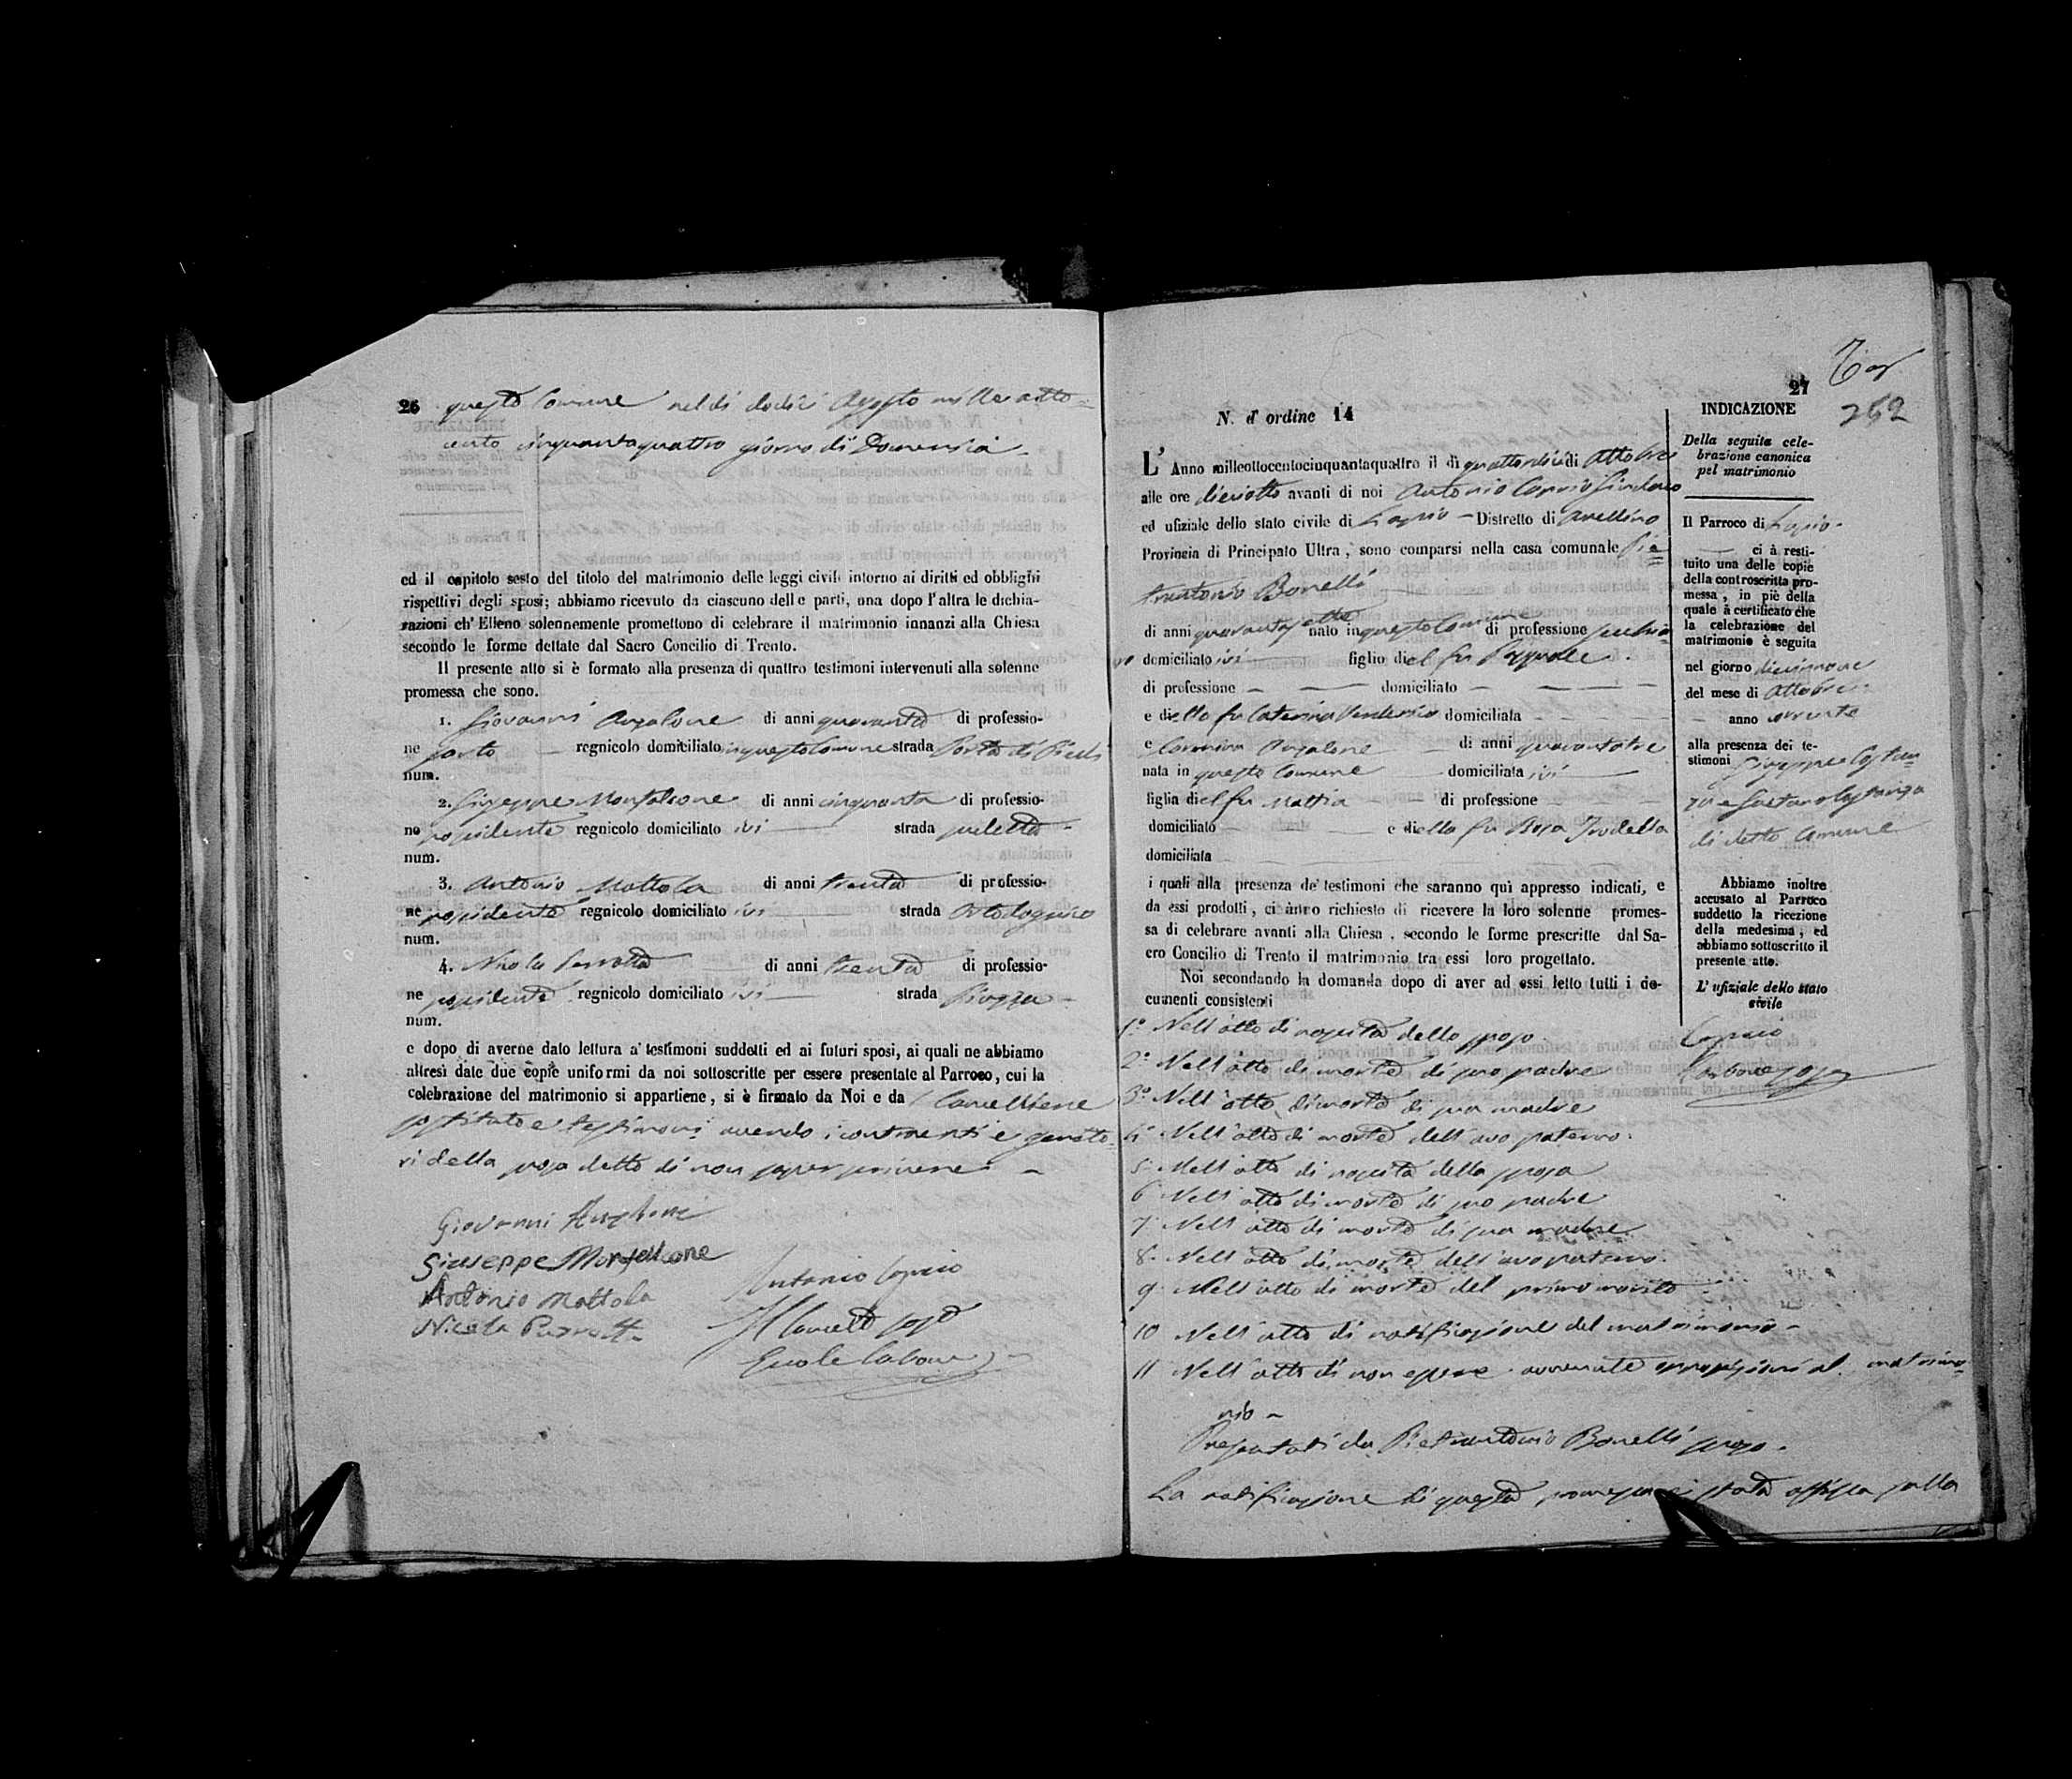 26 questo Comune nel dì dodici Agosto mille otto=
cento cinquantaquattro giorno di Domenica
ed il capitolo sesto del titolo del matrimonio delle leggi civili intorno ai diritti ed obblighi
rispettivi degli sposi; abbiamo ricevuto da ciascuno delle parti, una dopo l'altra le dichia-
razioni ch'Elleno solennemente promettono di celebrare il matrimonio innanzi alla Chiesa
secondo le forme dettate dal Sacro Concilio di Trento.
Il presente atto si è formato alla presenza di quattro testimoni intervenuti alla solenne
promessa che sono.
1. Giovanni Anzalone di anni quaranta di professio-
ne sarto regnicolo domiciliato in questo Comune strada Porta di
num.
2. Giuseppe Monfalcone di anni cinquanta di professio-
ne possidente regnicolo domiciliato ivi strada
num.
3. Antonio Mottola di anni trenta di professio-
ne possidente regnicolo domiciliato ivi strada
num.
4. Nicola Perrotta di anni trenta di professio-
ne possidente regnicolo domiciliato ivi strada Piazza
num.
e dopo di averne dato lettura a' testimoni suddetti ed ai futuri sposi, ai quali ne abbiamo
altresì date due copie uniformi da noi sottoscritte per essere presentate al Parroco, cui la
celebrazione del matrimonio si appartiene, si è firmato da Noi e da Cancelliere
sostituto e testimoni avendo i contraenti e genito=
ri della sposa detto di non saper scrivere
Giovanni Anzalone
Giuseppe Monfalcone
Antonio Mottola
Nicola Perrotta
Antonio Caprio
Il Cancell sost
27
252
N. d' ordine 14
L' Anno milleottocentocinquantaquattro il dì quattordici di Ottobre
alle ore dieciotto avanti di noi Antonio Caprio Sindaco
ed ufiziale dello stato civile di Lapio Distretto di Avellino
Provincia di Principato Ultra, sono comparsi nella casa comunale Pie=
trantonio Bonelli
di anni quarantasette nato in questo Comune di professione
domiciliato ivi figlio di el fu Pasquale
di professione domiciliato
e di ella fu Caterina domiciliata
e Carmina Anzalone di anni quarantatre
nata in questo Comune domiciliata ivi
figlia di el fu Mattia di professione
domiciliato e di ella fu Rosa
domiciliata
i quali alla presenza de' testimoni che saranno quì appresso indicati, e
da essi prodotti, ci ànno richiesto di ricevere la loro solenne promes-
sa di celebrare avanti alla Chiesa, secondo le forme prescritte dal Sa-
cro Concilio di Trento il matrimonio tra essi loro progettato.
Noi secondando la domanda dopo di aver ad essi letto tutti i do-
cumenti consistenti
1° Nell'atto di nascita dello sposo
2° Nell'atto di morte di suo padre
3° Nell'atto di morte di sua madre
4 Nell'atto di morte dell'avo paterno
5 Nell'atto di nascita della sposa
6 Nell'atto di morte di suo padre
7 Nell'atto di morte di sua madre
8 Nell'atto di morte dell'avo paterno
9 Nell'atto di morte del primo marito
10 Nell'atto di notificazione del matrimonio
11 Nell'atto di non essere avvenute opposizioni al matrimo=
nio
Presentati da Pietrantonio Bonelli sposo.
La notificazione di questa promessa è stata affissa sulla
INDICAZIONE
Della seguita cele-
brazione canonica
pel matrimonio
Il Parroco di Lapio
ci à resti-
tuito una delle copie
della controscritta pro-
messa, in piè della
quale à certificato che
la celebrazione del
matrimonio è seguita
nel giorno diecinnove
del mese di Ottobre
anno corrente
alla presenza dei te-
stimoni Giuseppe Costan=
za e Gaetano Costanza
di detto Comune
Abbiamo inoltre
accusato al Parroco
suddetto la ricezione
della medesima, ed
abbiamo sottoscritto il
presente atto.
L' ufiziale dello stato
civile
Caprio